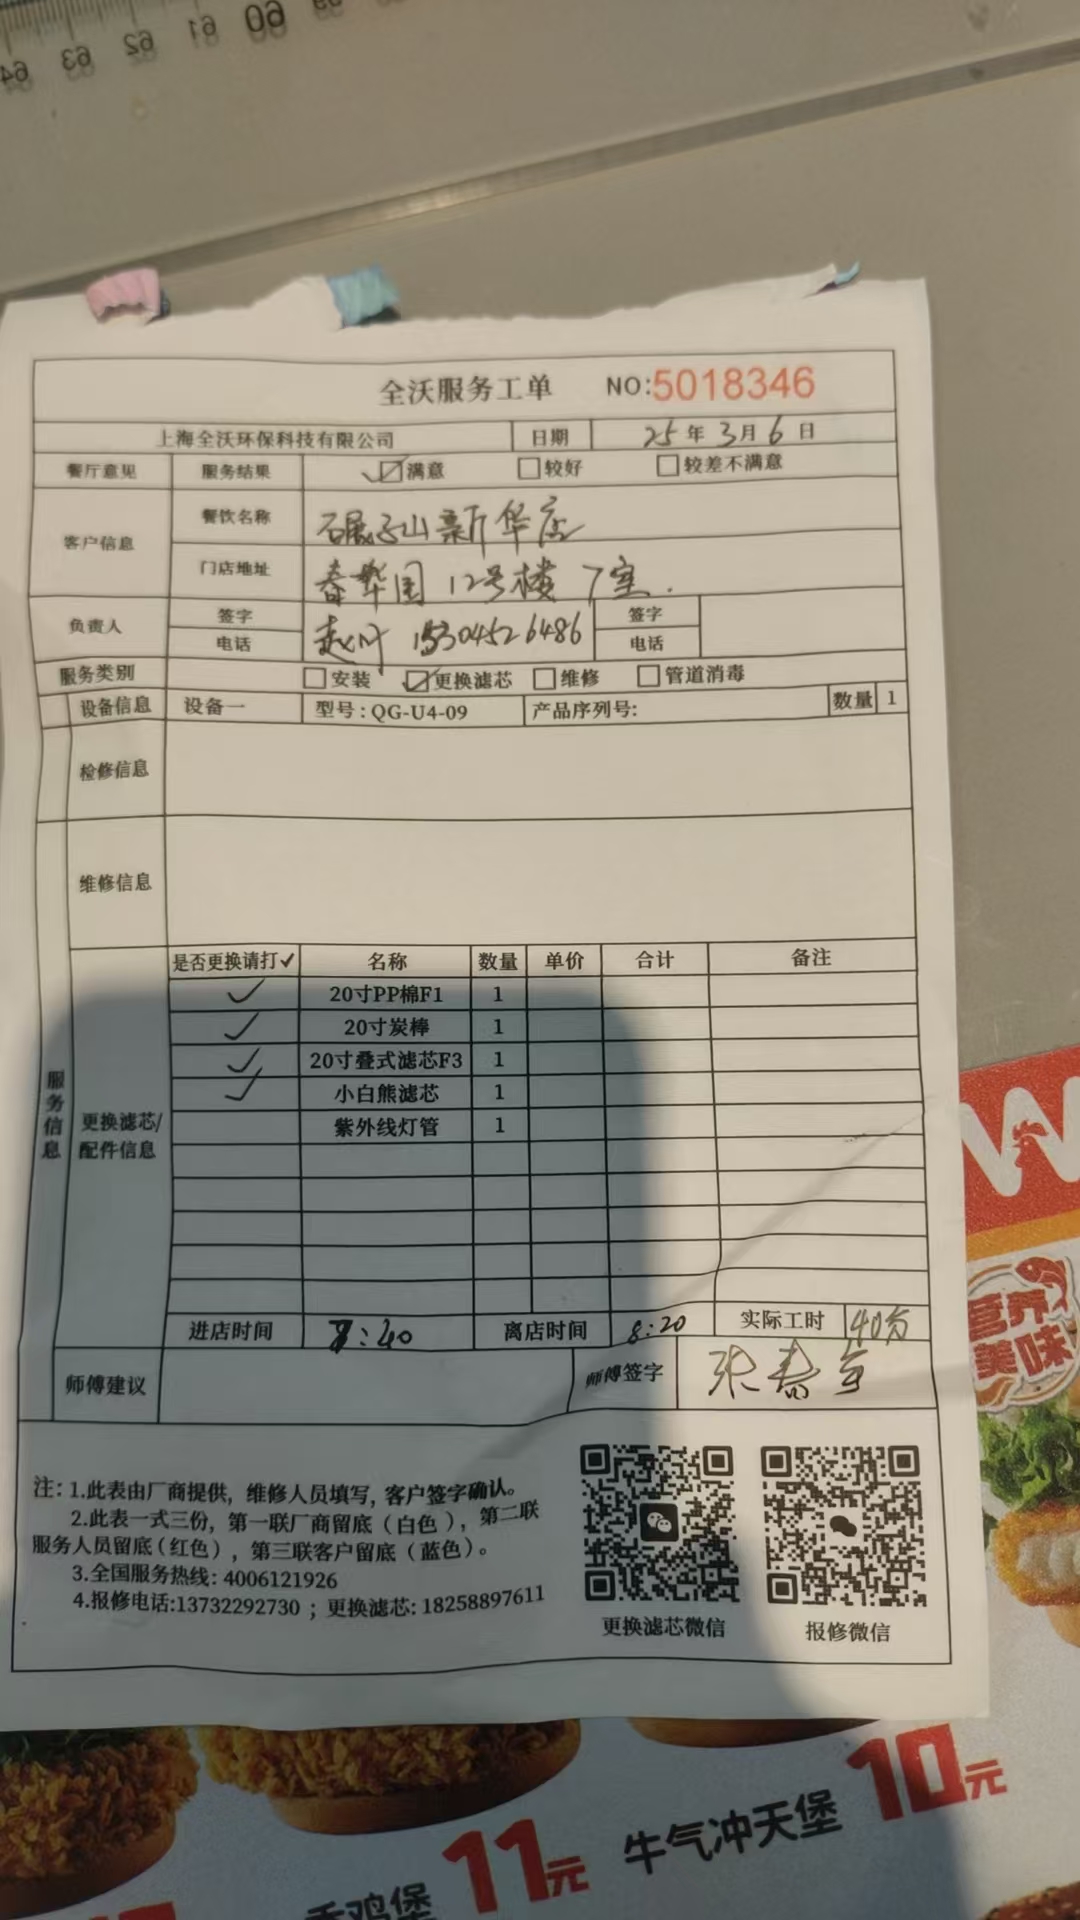 64 63 62 61 60 59
全沃服务工单 NO:5018346
上海全沃环保科技有限公司 日期 25年3月6日
餐厅意见 服务结果 ☑满意 □较好 □较差不满意
客户信息 餐饮名称 碾子山新华店
门店地址 春华园12号楼7室.
负责人 签字 签字
电话 15304526486 电话
服务类别 □安装 ☑更换滤芯 □维修 □管道消毒
设备信息 设备一 型号:QG-U4-09 产品序列号: 数量 1
检修信息
维修信息
服务信息
更换滤芯/配件信息
是否更换请打✓ 名称 数量 单价 合计 备注
✓ 20寸PP棉F1 1
✓ 20寸炭棒 1
✓ 20寸叠式滤芯F3 1
✓ 小白熊滤芯 1
紫外线灯管 1
进店时间 :40 离店时间 8:20 实际工时 40分
师傅建议 师傅签字 张春
注:1.此表由厂商提供,维修人员填写,客户签字确认。
2.此表一式三份,第一联厂商留底(白色),第二联
服务人员留底(红色),第三联客户留底(蓝色)。
3.全国服务热线:4006121926
4.报修电话:13732292730;更换滤芯:18258897611
更换滤芯微信 报修微信
W
营养
美味
11元
牛气冲天堡 10元
香鸡堡